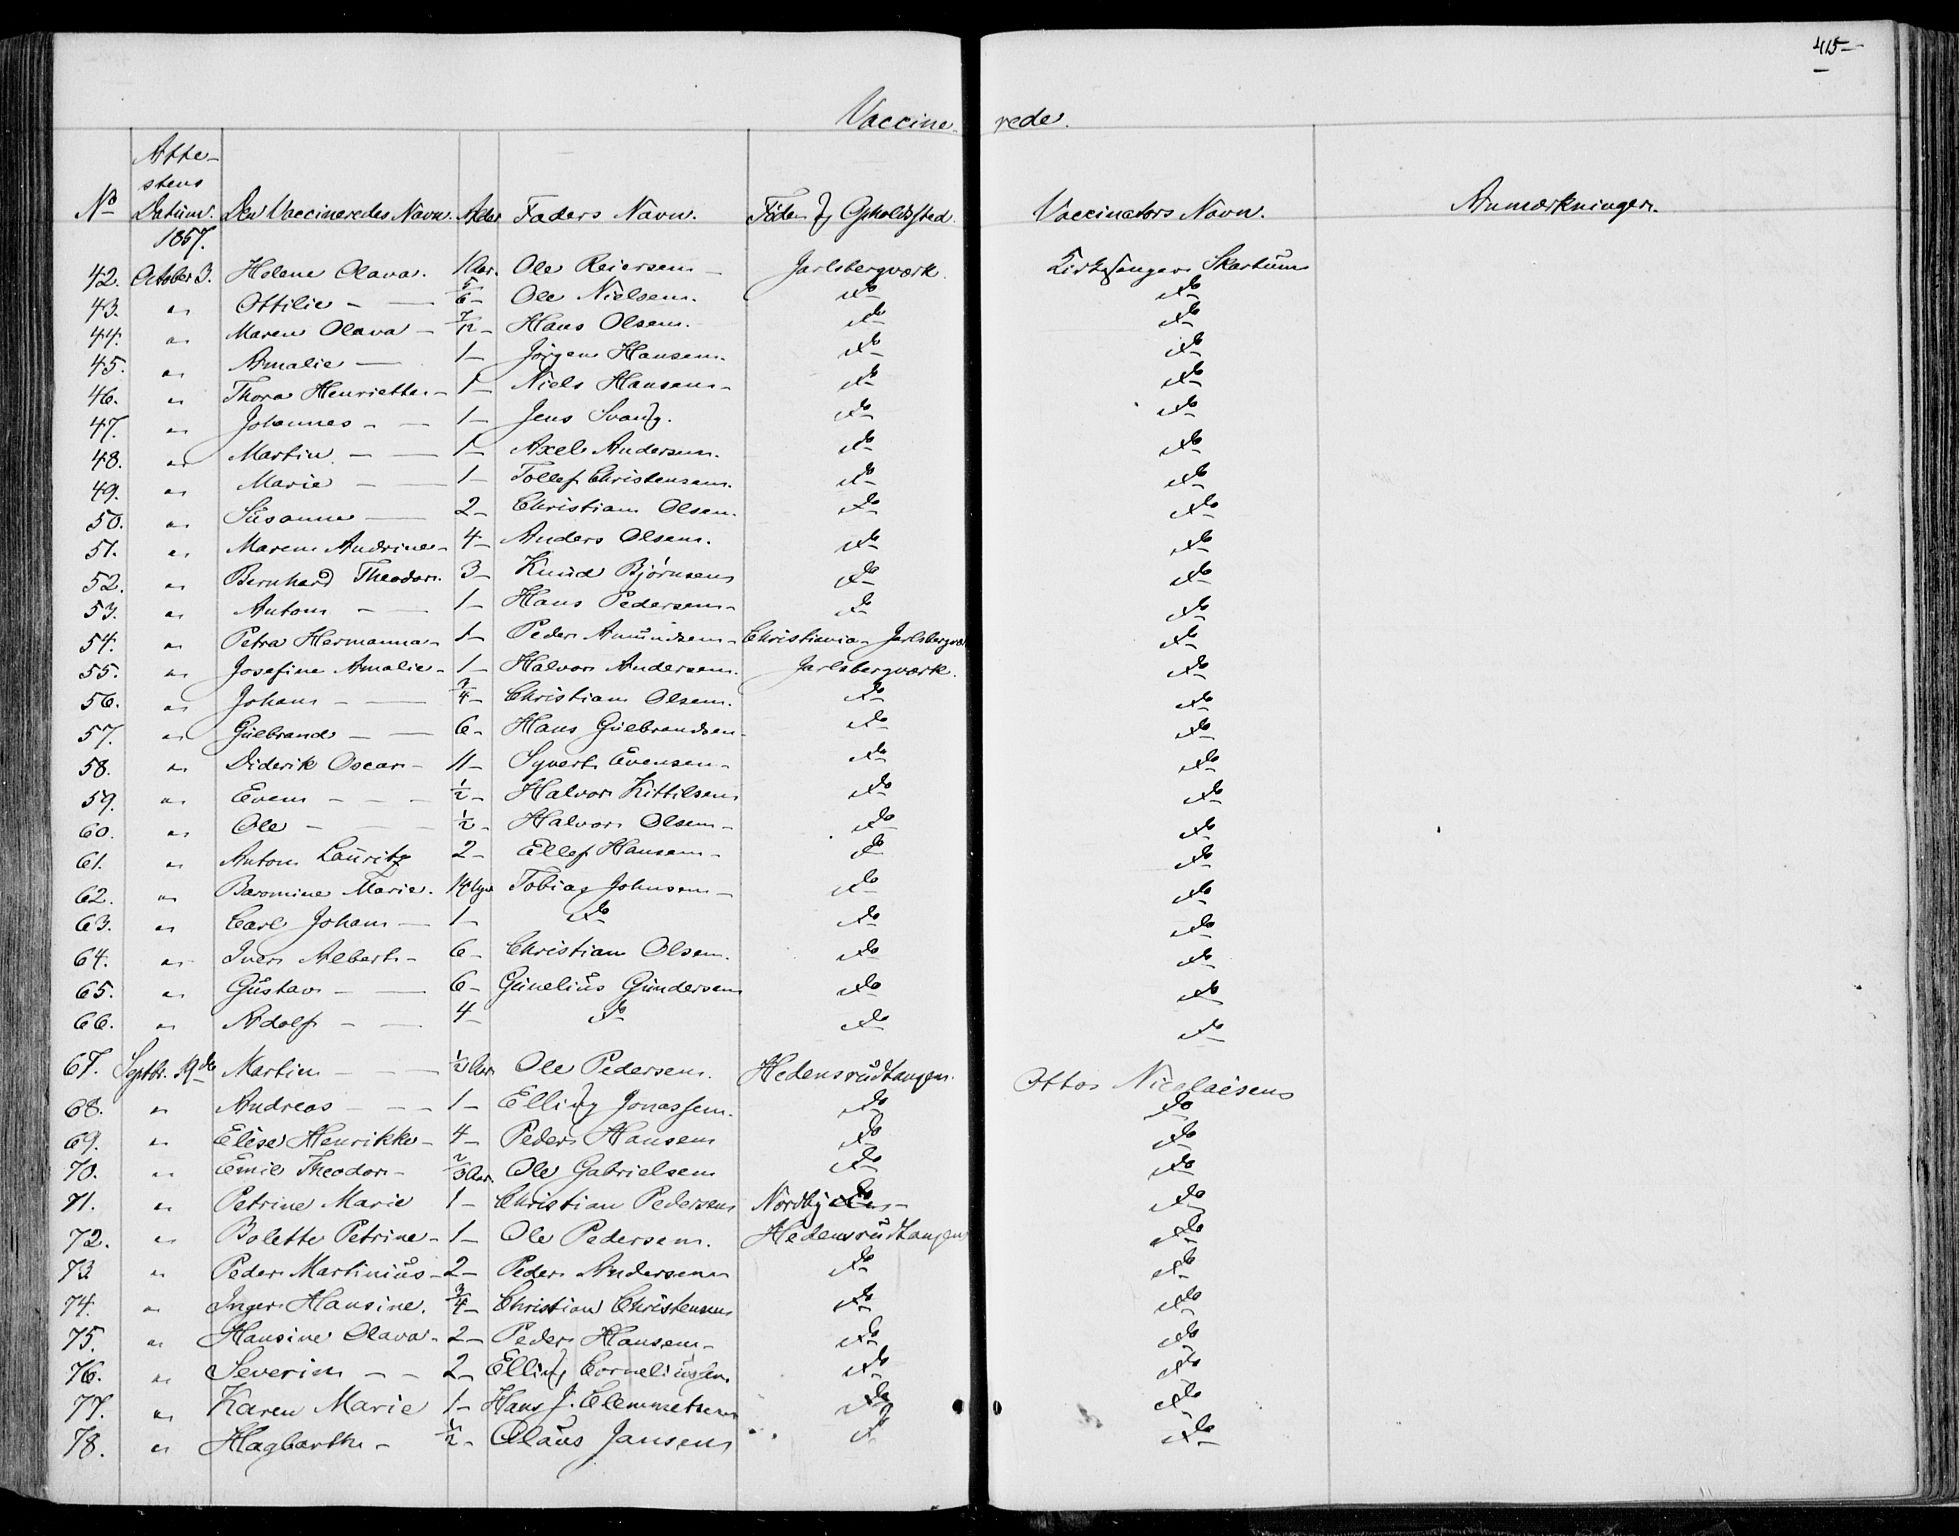 415
Vaccinerede.
No Attestens Datum. Den Vaccineredes Navn. Alder Faders Navn. Føde og Opholdssted. Vaccinators Navn. Anmærkninger.
1857.
42. October 3. Helene Olava. 1 Aar. Ole Reiersen Jarlsbergværk. Kirkesanger Skartum
43. " Ottilie - 5/6 - Ole Nielsen. do do
44. " Maren Olava - 7/12 - Hans Olsen. do do
45. " Amalie - 1 - Jørgen Hansen. do do
46. " Thora Henriette - 1 - Niels Hansen - do do
47. " Johannes - 1 - Jens Svang. do do
48. " Martin - 1 - Axel Andersen. do do
49. " Marie - 1 - Tollef Christensen. do do
50. " Susanne - 2 - Christian Olsen. do do
51. " Maren Andrine - 4 - Anders Olsen. do do
52. " Bernhard Theodor. 3 - Knud Bjørnsen do do
53. " Anton - 1 - Hans Pedersen - do do
54. " Petra Hermanna - 1 - Peder Amundsen - Christiania - Jarlsbergvæ do
55. " Josefine Amalie - 1 - Halvor Andersen. Jarlsbergværk. do
56. " Johan - 3/4 - Christian Olsen. do do
57. " Gulbrand - 6 - Hans Gulbrandsen - do do
58. " Diderik Oscar - 11 - Syvert Evensen - do do
59. " Even - 1/2 - Halvor Kittilsen do do
60. " Ole - 1/2 - Halvor Olsen - do do
61. " Anton Lauritz 2 - Ellef Hansen - do do
62. " Marie. Tobias Johnsen - do do
63. " Carl Johan - 1 - do do do
64. " Iver Albert - 6 - Christian Olsen. do do
65. " Gustav - 6 - Gunelius Gundersen do do
66. " Adolf - 4 - do do do
67. Septbr. 19de Martin - Aar. Ole Pedersen. Hedensrudtangen. Otto Nicolaisen
68. " Andreas - 1 - Elling Jonassen. do do
69. " Elise Henrikke - 4 - Peder Hansen do do
70. " Emil Theodor - 2/3 Aar. Ole Gabrielsen do do
71. " Petrine Marie 1 - Christian Pedersen Nordby do
72. " Bolette Petrine - 1 - Ole Pedersen. Hedensrudtangen do
73 " Peder Martinius - 2 - Peder Andersen do do
74. " Inger Hansine. 3/4 - Christian Christensen do do
75. " Hansine Olava - 2 - Peder Hansen - do do
76. " Severin - 2 - Elling Corneliussen do do
77. " Karen Marie 1 - Hans J. Clemmetsen do do
78. " Hagbarth - 1/2 - Olaus Jansen do do